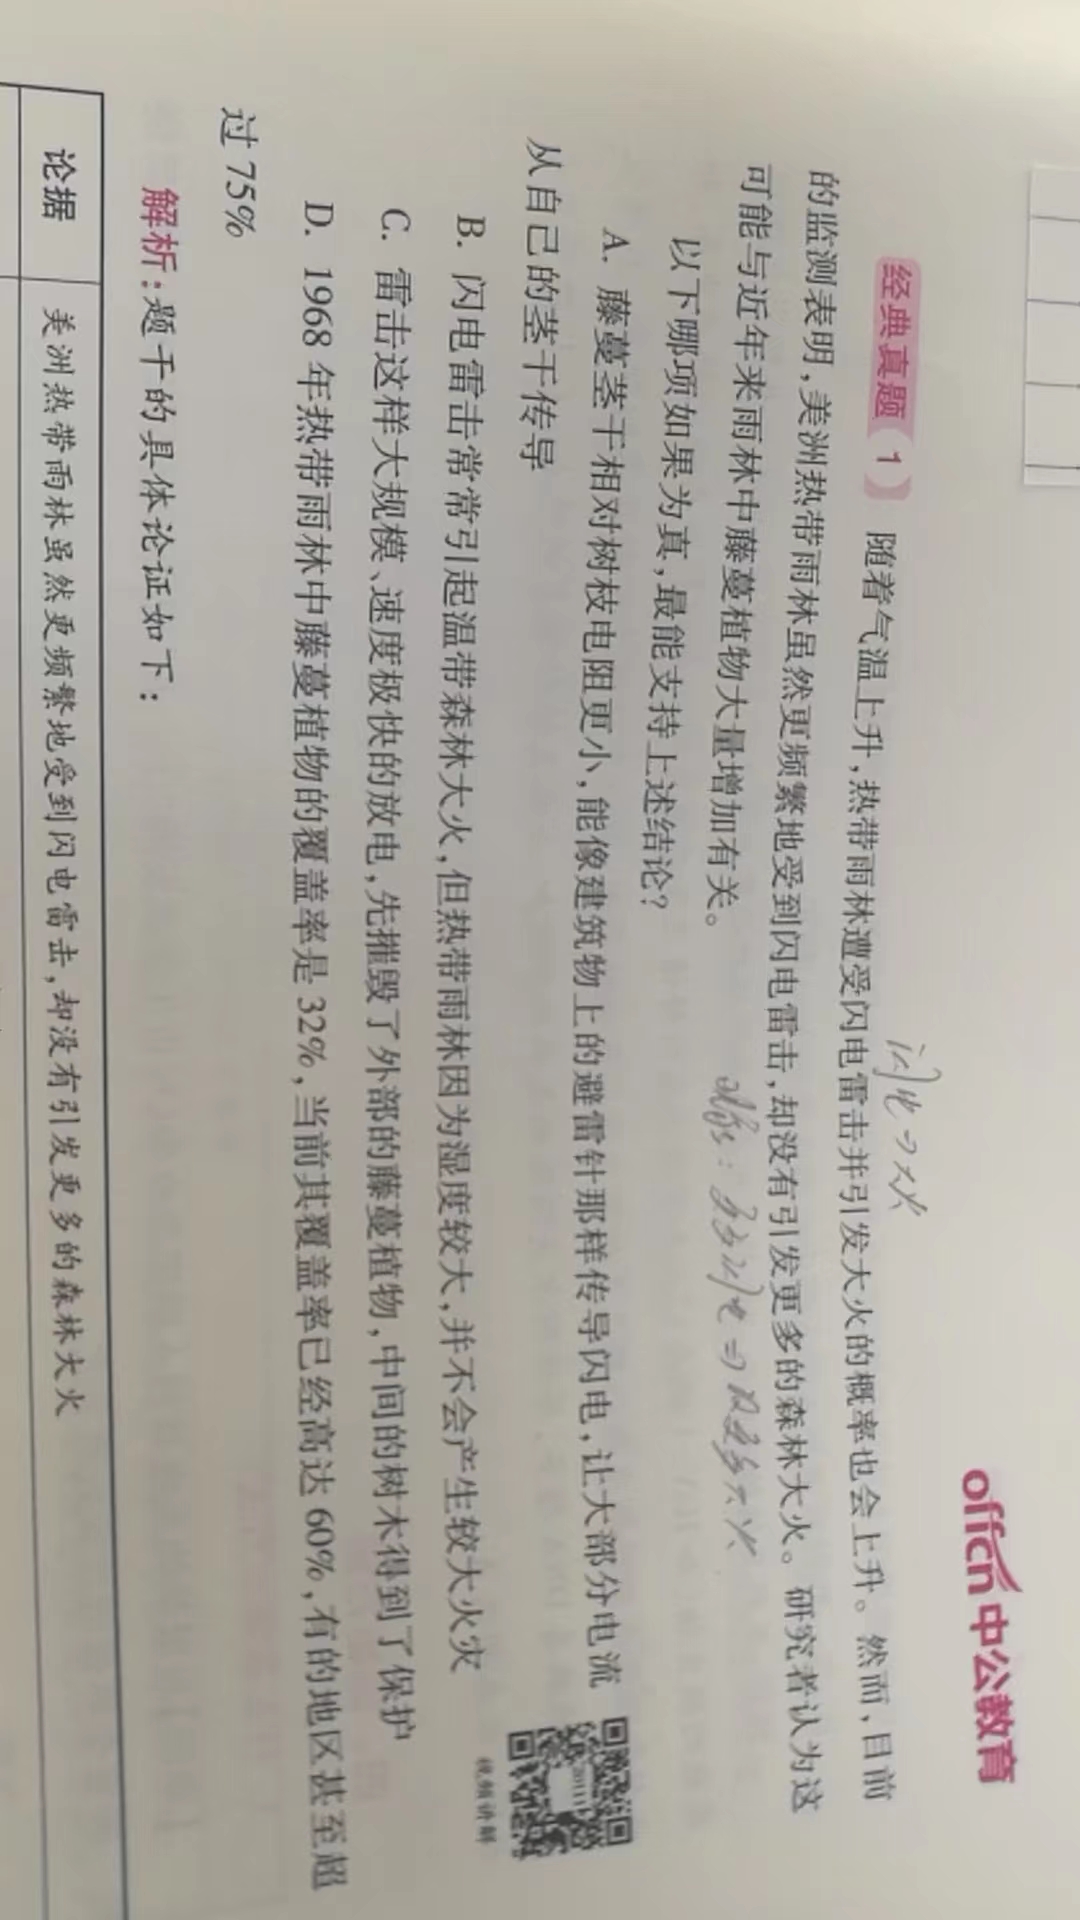 offcn中公教育
经典真题(1) 随着气温上升,热带雨林遭受闪电雷击并引发大火的概率也会上升。然而,目前
的监测表明,美洲热带雨林虽然更频繁地受到闪电雷击,却没有引发更多的森林大火。研究者认为这
可能与近年来雨林中藤蔓植物大量增加有关。
以下哪项如果为真,最能支持上述结论?
A. 藤蔓茎干相对树枝电阻更小,能像建筑物上的避雷针那样传导闪电,让大部分电流
从自己的茎干传导
B. 闪电雷击常常引起温带森林大火,但热带雨林因为湿度较大,并不会产生较大火灾
C. 雷击这样大规模、速度极快的放电,先摧毁了外部的藤蔓植物,中间的树木得到了保护
D. 1968年热带雨林中藤蔓植物的覆盖率是32%,当前其覆盖率已经高达60%,有的地区甚至超
过75%
视频讲解
解析:题干的具体论证如下:
论据 美洲热带雨林虽然更频繁地受到闪电雷击,却没有引发更多的森林大火